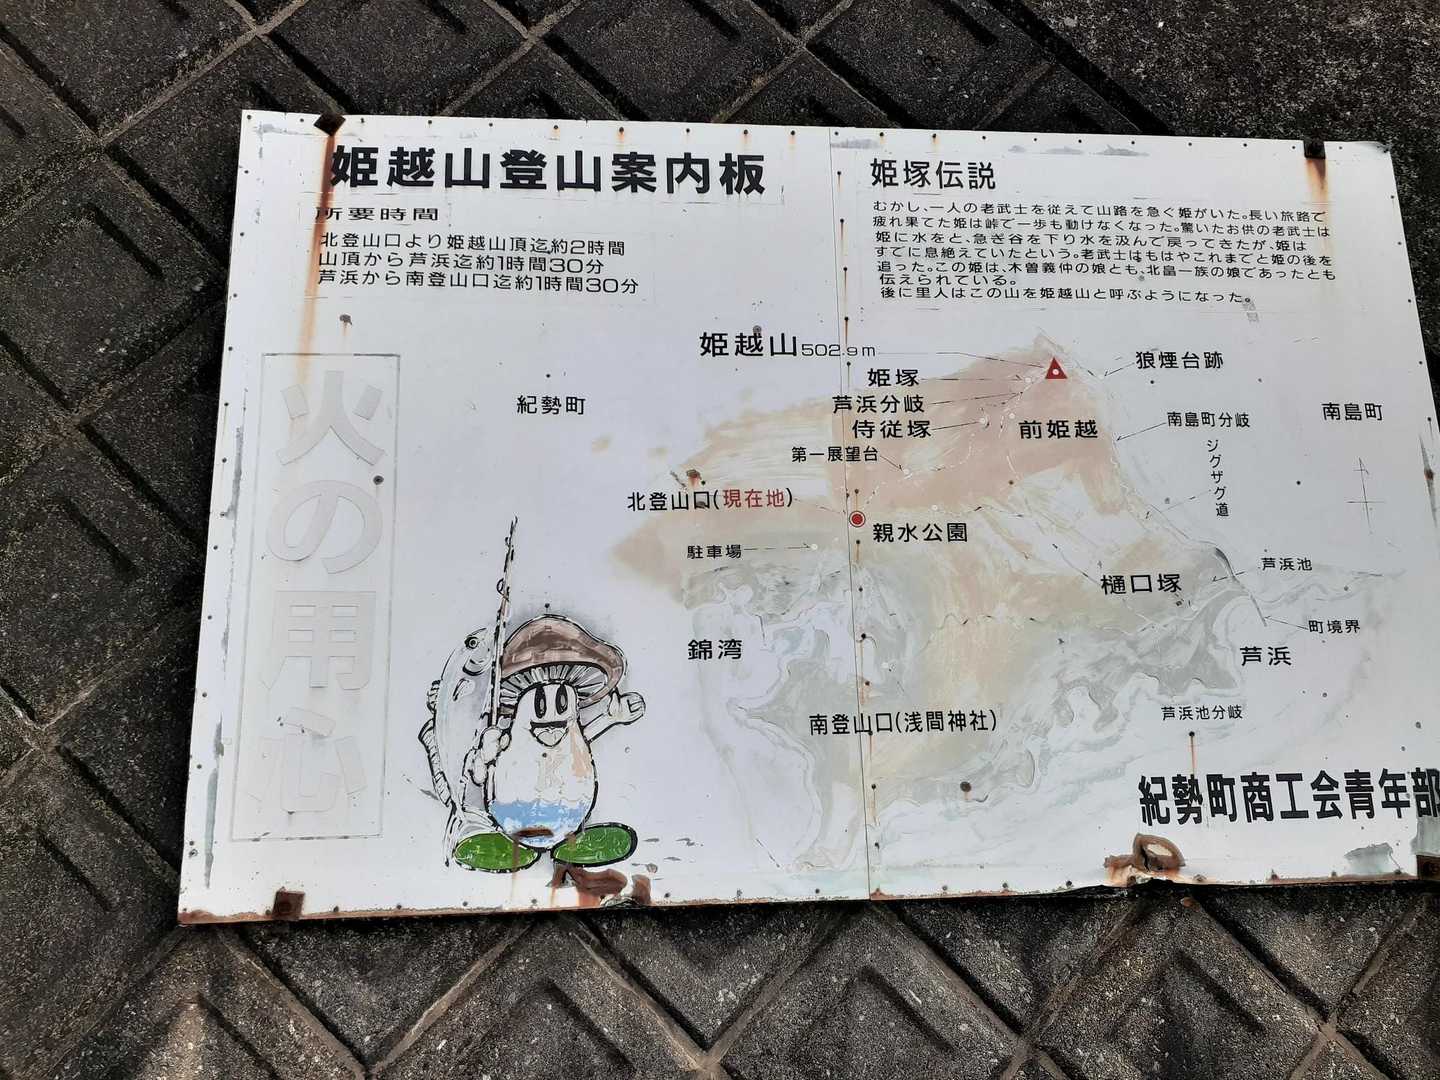 姫越山登山案内板
所要時間
北登山口より姫越山頂迄約2時間
山頂から芦浜迄約1時間30分
芦浜から南登山口迄約1時間30分
火の用心
姫塚伝説
むかし、一人の老武士を従えて山路を急ぐ姫がいた。長い旅路で
疲れ果てた姫は峠で一歩も動けなくなった。驚いたお供の老武士は
姫に水をと、急ぎ谷を下り水を汲んで戻ってきたが、姫は
すでに息絶えていたという。老武士はもはやこれまでと姫の後を
追った。この姫は、木曽義仲の娘とも、北畠一族の娘であったとも
伝えられている。
後に里人はこの山を姫越山と呼ぶようになった。
姫越山502.9m
狼煙台跡
姫塚
紀勢町
芦浜分岐
南島町
南島町分岐
侍従塚
前姫越
第一展望台
ジグザグ道
北登山口(現在地)
親水公園
駐車場
芦浜池
樋口塚
町境界
錦湾
芦浜
芦浜池分岐
南登山口(浅間神社)
K
紀勢町商工会青年部